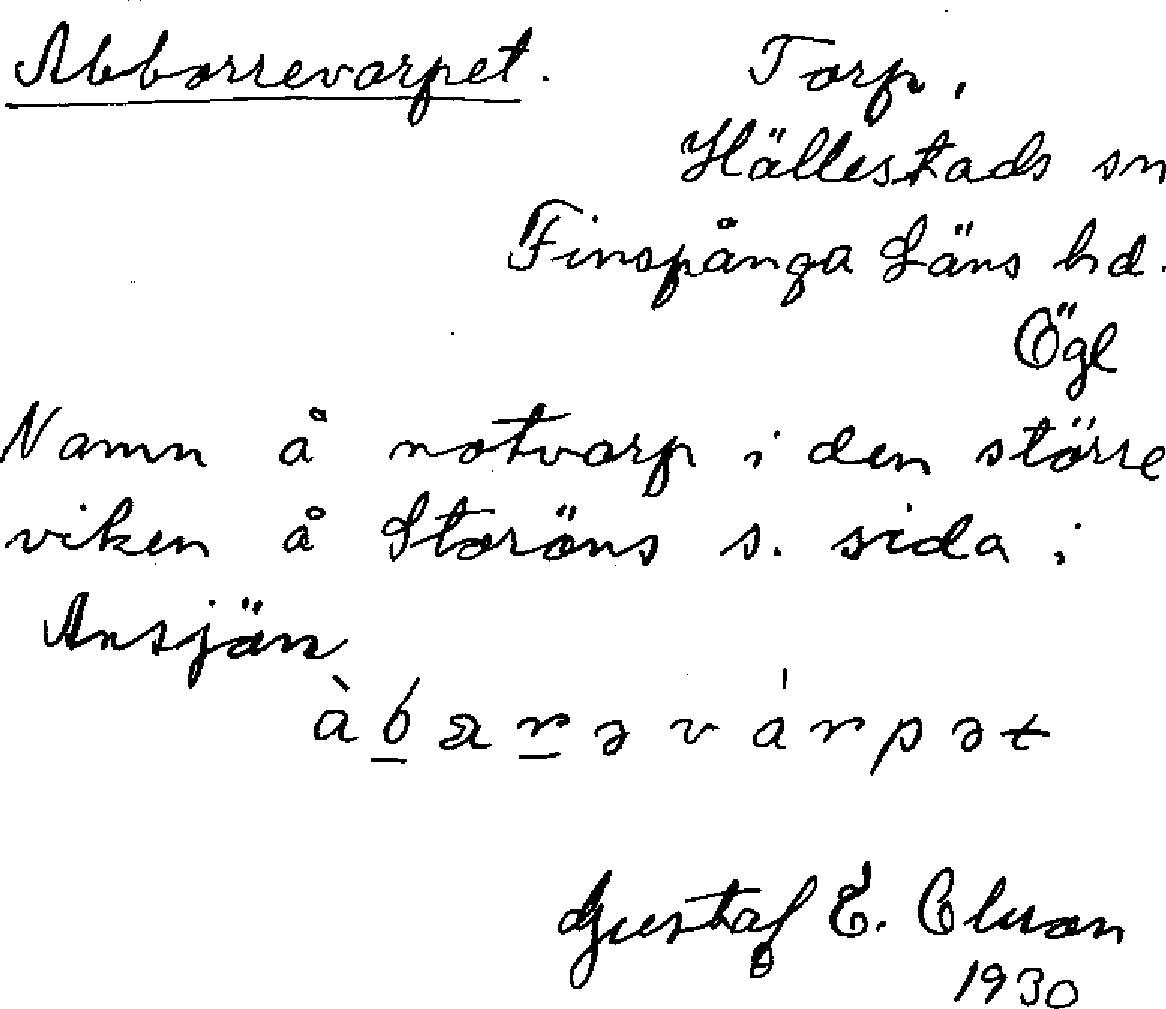 Abborrevarpet. Torp,
Hällestads sn
Finspånga Läns hd.
Ögl
Namn å notvarp i den större
viken å Storöns s. sida i
Ansjön
Gustaf E.
1930